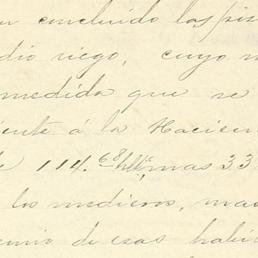 concluido los
dio riego, cuyo
medida que se
ente á la Hacien
114. 68 mas 33
los medieros, ma
de esas habi